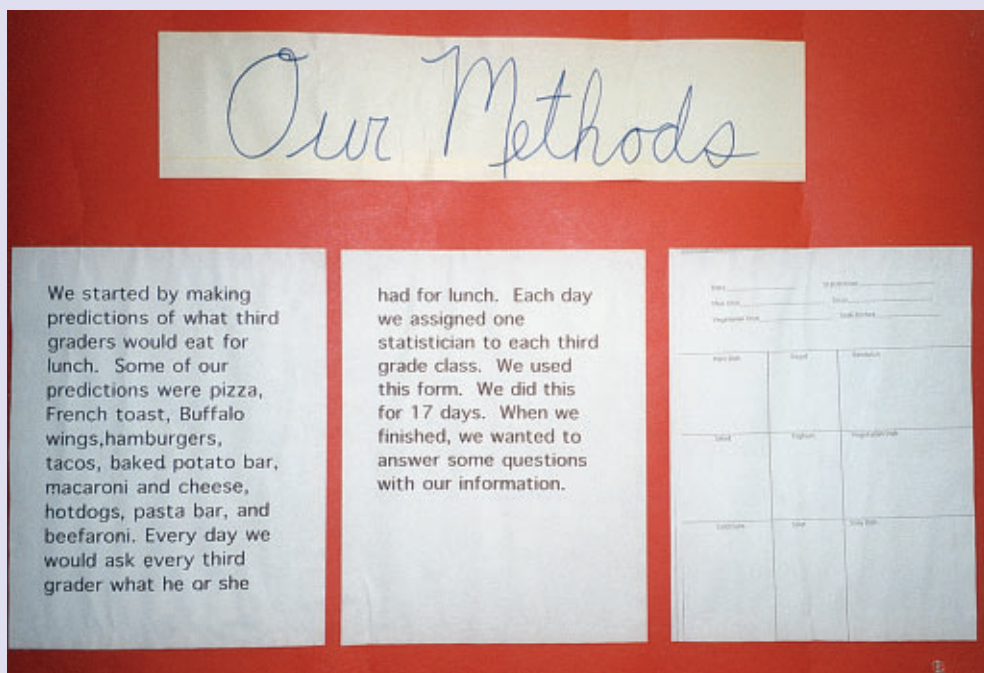 Our Methods
We started by making
predictions of what third
graders would eat for
lunch. Some of our
predictions were pizza,
French toast, Buffalo
wings,hamburgers,
tacos, baked potato bar,
macaroni and cheese,
hotdogs, pasta bar, and
beefaroni. Every day we
would ask every third
grader what he or she
had for lunch. Each day
we assigned one
statistician to each third
grade class. We used
this form. We did this
for 17 days. When we
finished, we wanted to
answer some questions
with our information.